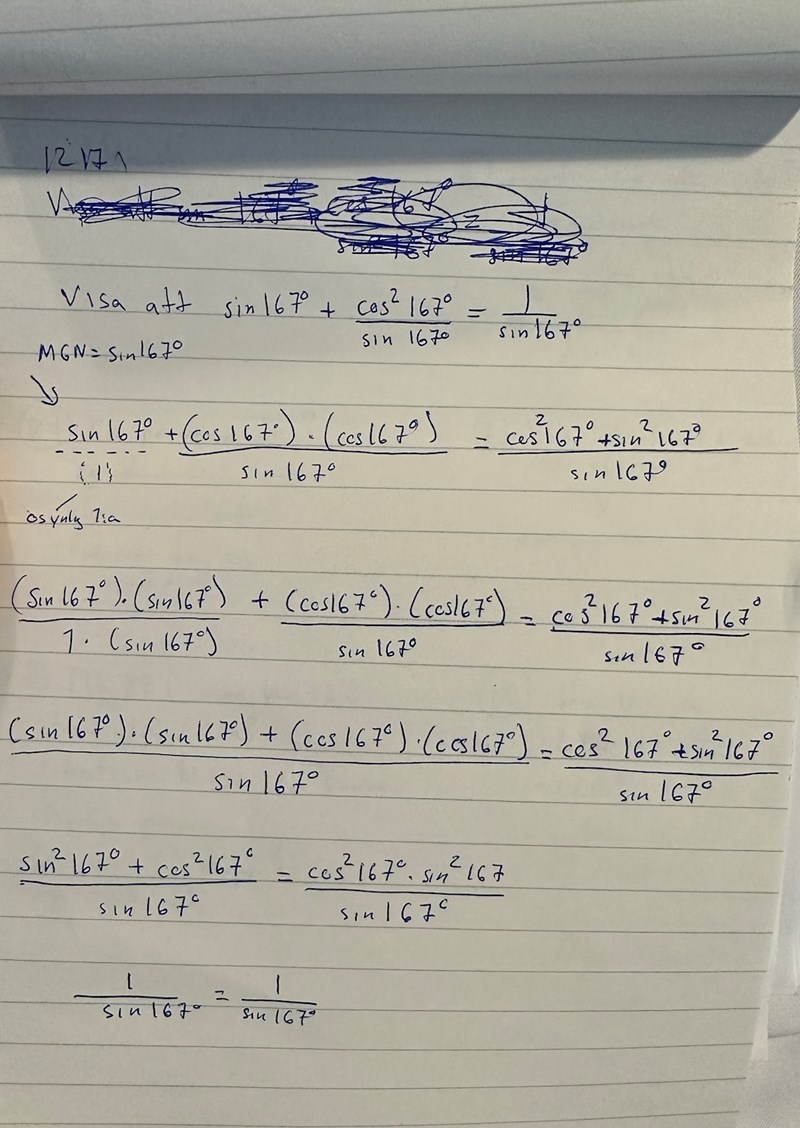 1217)
Visa att sin 167° + cos² 167° / sin 167° = 1 / sin 167°
MGN = sin 167°
sin 167° / (1) + (cos 167°) · (cos 167°) / sin 167° = cos² 167° + sin² 167° / sin 167°
osynlig 1:a
(sin 167°) · (sin 167°) / 1 · (sin 167°) + (cos 167°) · (cos 167°) / sin 167° = cos² 167° + sin² 167° / sin 167°
(sin 167°) · (sin 167°) + (cos 167°) · (cos 167°) / sin 167° = cos² 167° + sin² 167° / sin 167°
sin² 167° + cos² 167° / sin 167° = cos² 167° · sin² 167 / sin 167°
1 / sin 167° = 1 / sin 167°